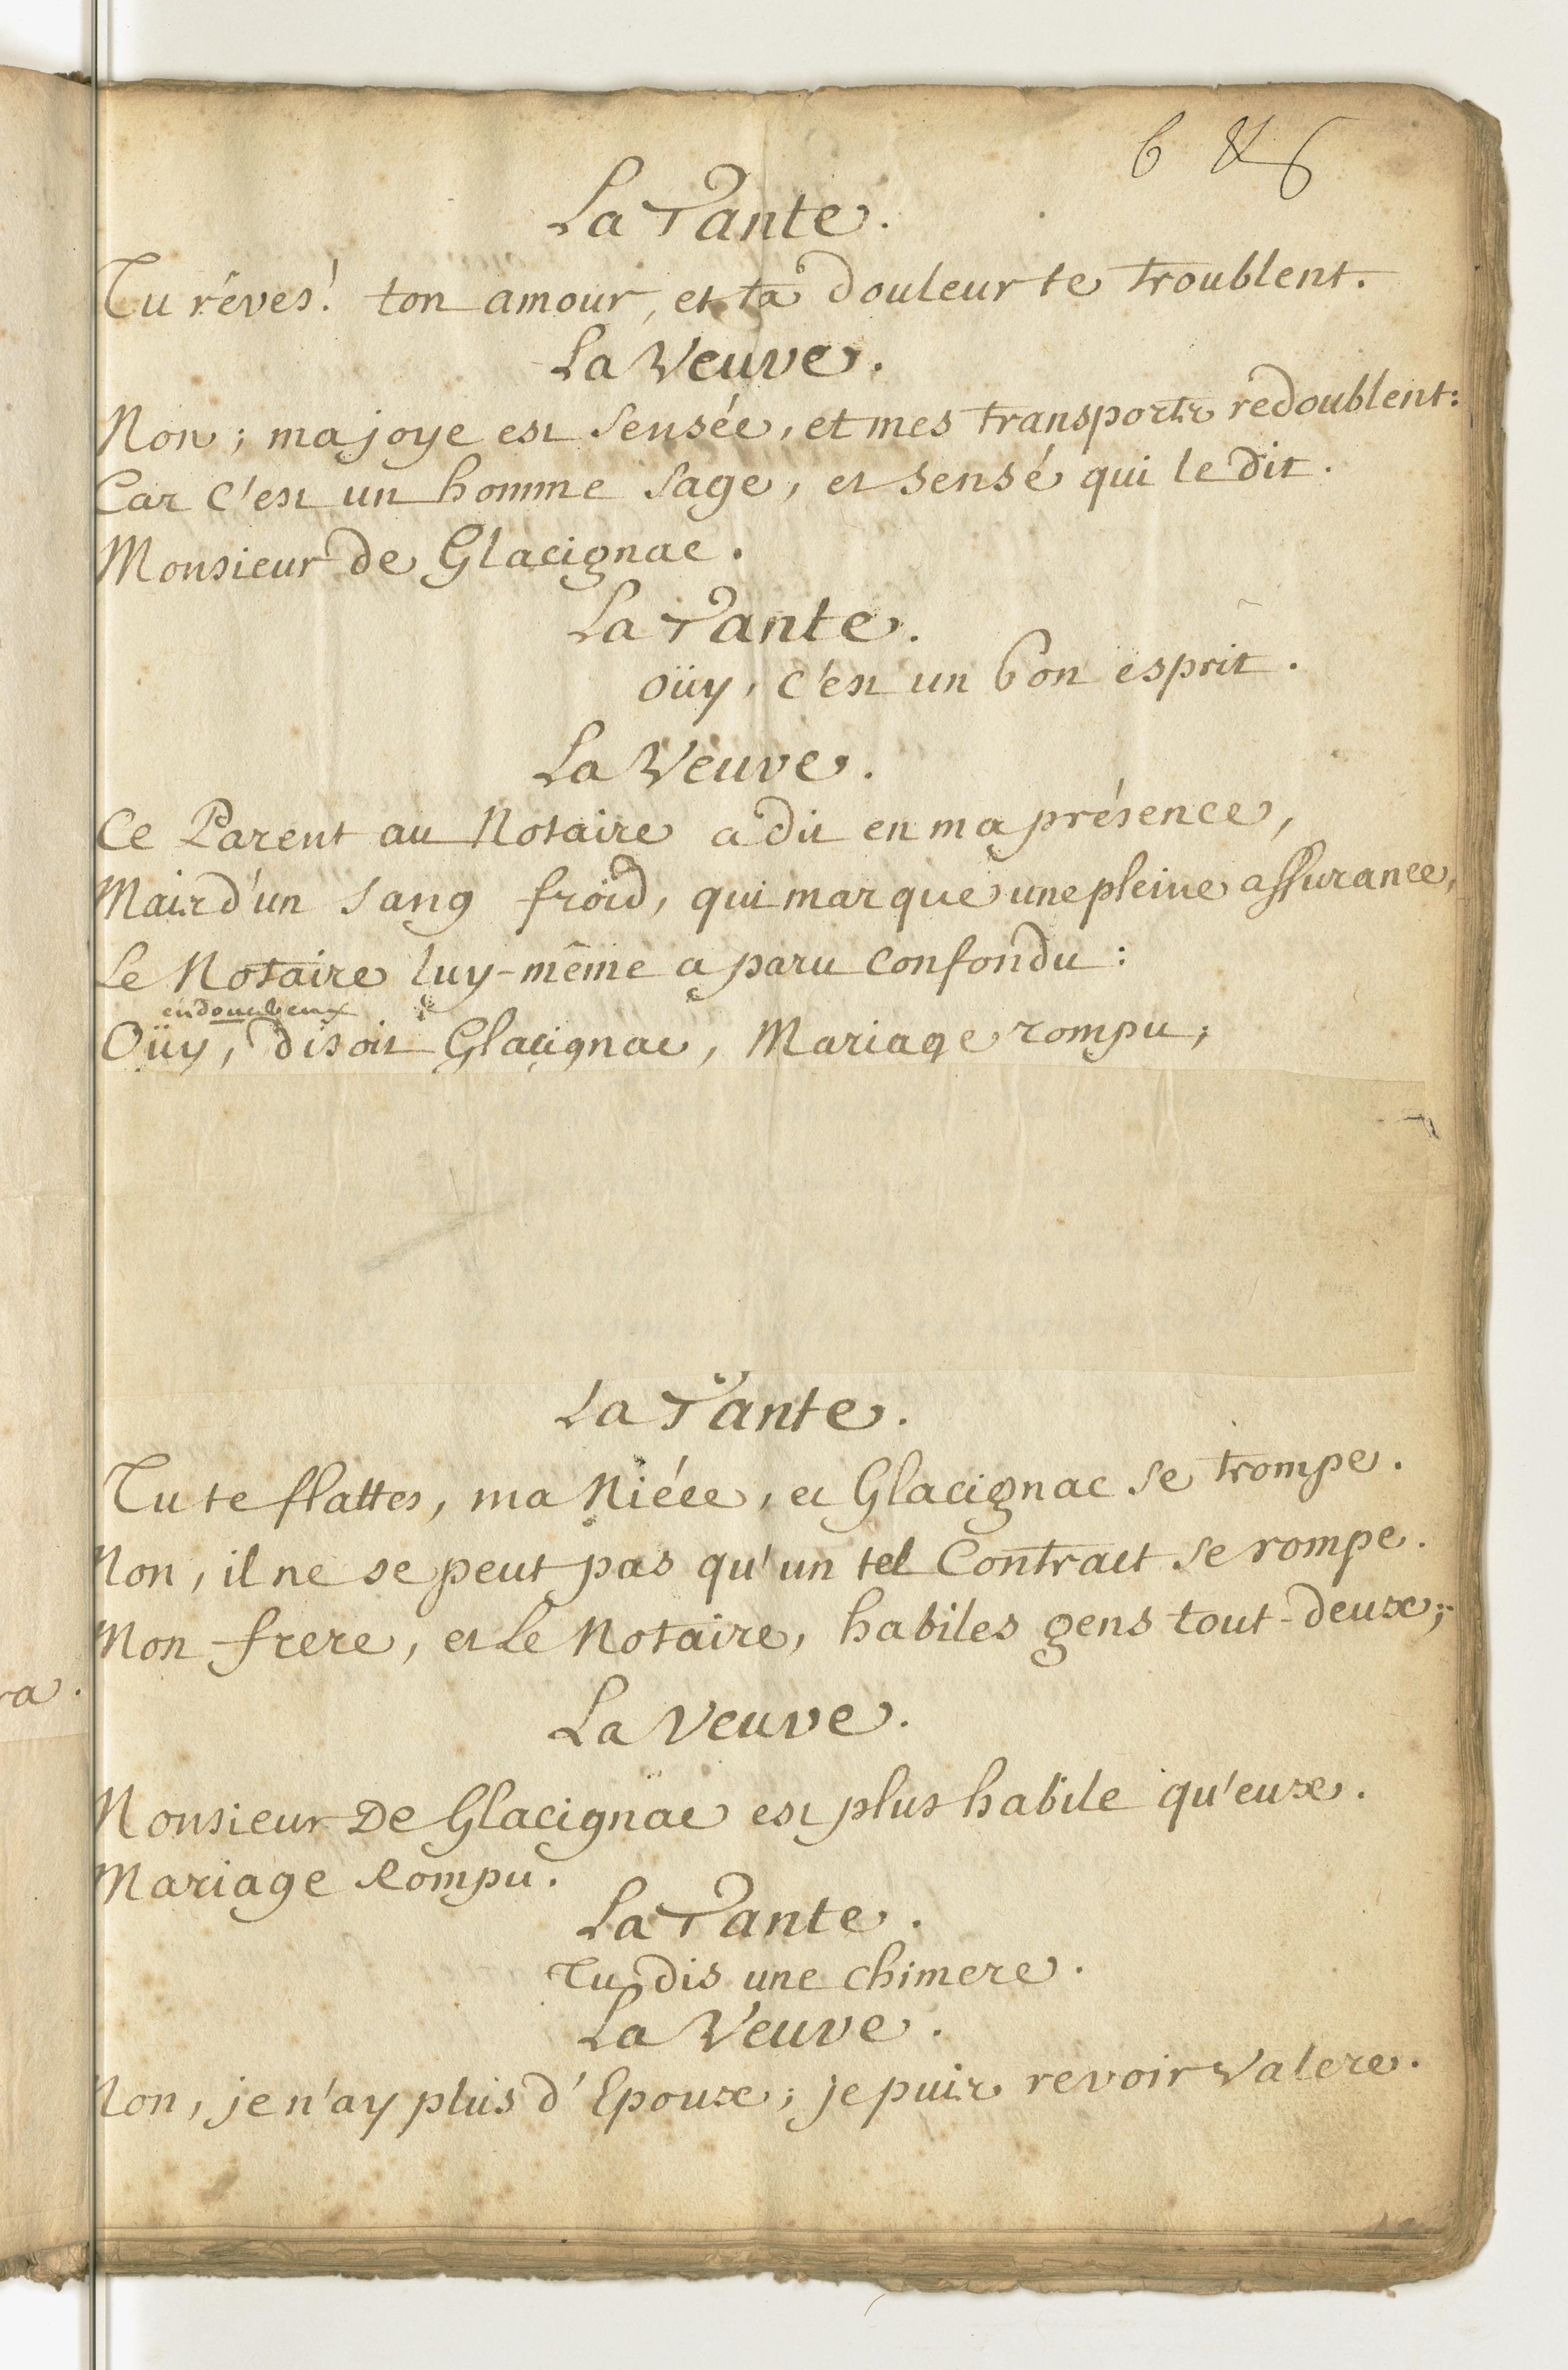 6
La Tante.
Tu rêves! ton amour, et ta douleur te troublent.
La Veuve.
Non; ma joye est sensée, et mes transports redoublent:
Car c'est un homme sage, et sensé qui le dit.
Monsieur de Glacignac.
La Tante.
Oüy, c'est un bon esprit.
La Veuve.
Ce Parent au Notaire a dit en ma présence,
Mais d'un sang froid, qui marque une pleine assurance,
Le Notaire luy-même a paru confondu:
Oüy, disoit Glacignac, Mariage rompu;
La Tante.
Tu te flattes, ma Niéce, et Glacignac se trompe.
Non, il ne se peut pas qu'un tel Contract se rompe.
Mon frere, et Le Notaire, habiles gens tout-deux;
La Veuve.
Monsieur De Glacignac est plus habile qu'eux.
Mariage Rompu.
La Tante.
Tu dis une chimere.
La Veuve.
Non, je n'ay plus d'Epoux; je puis revoir Valere.